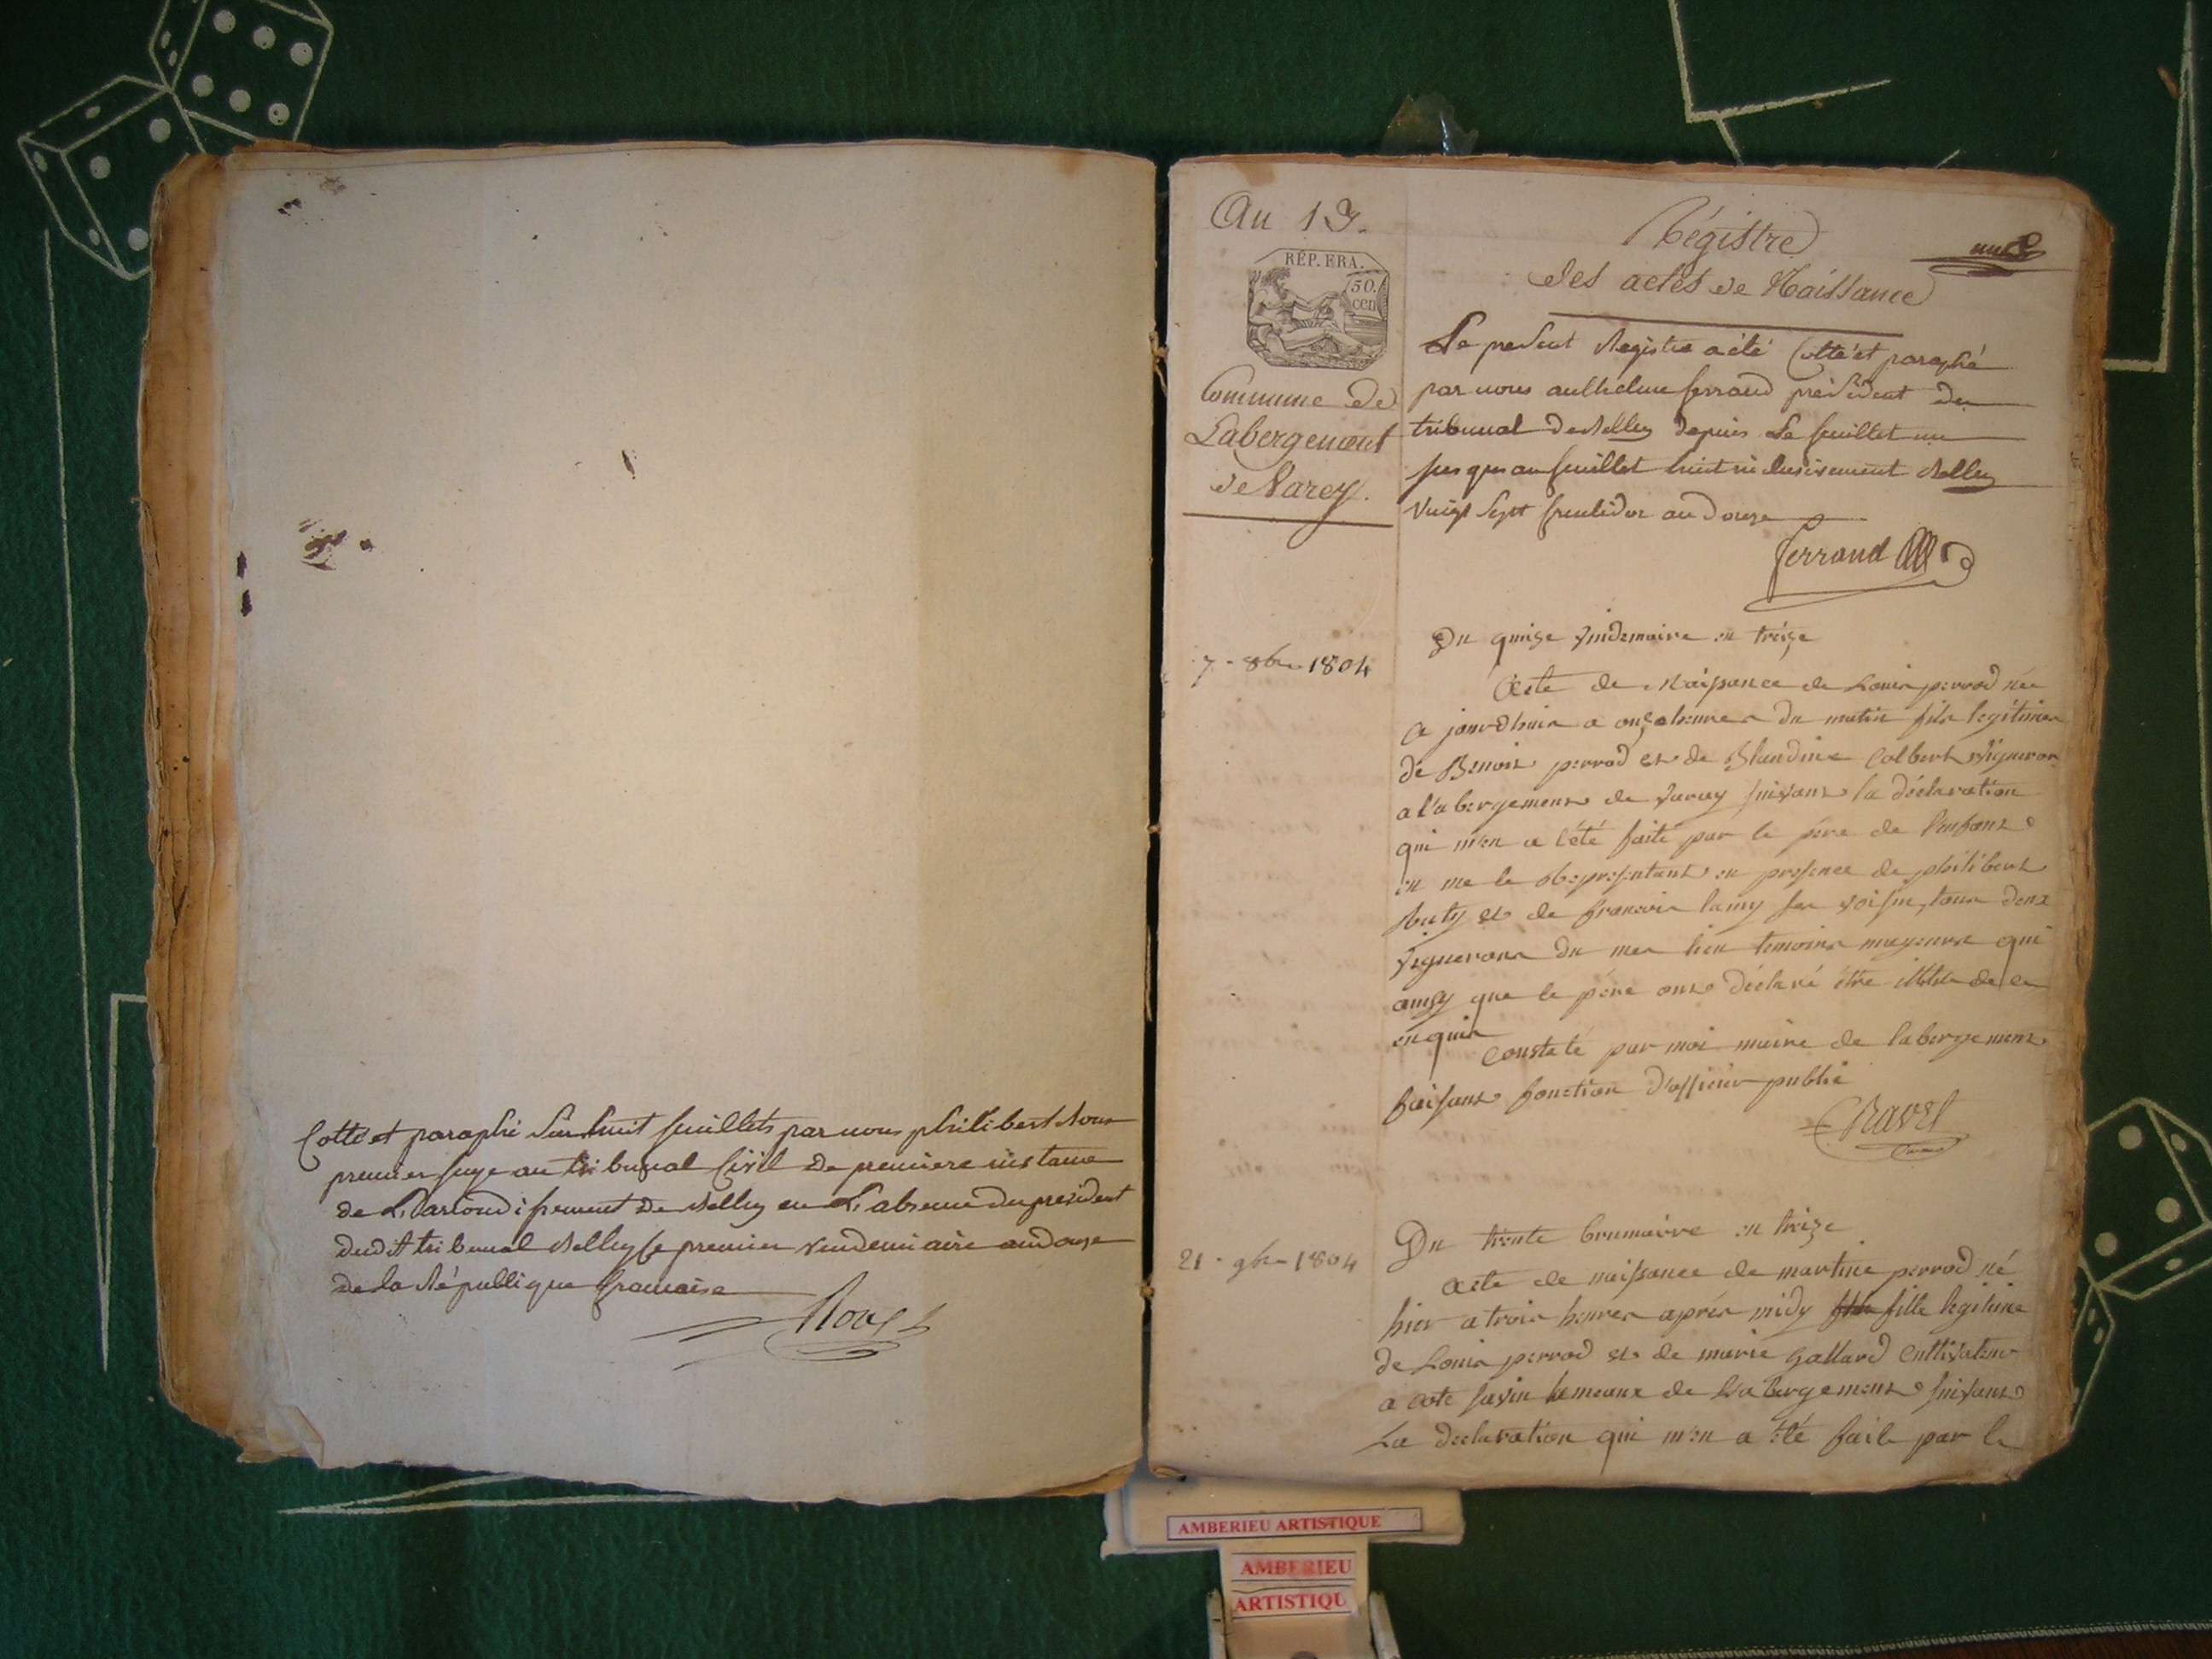 Cotté et paraphé Sur huit feuillets par nous philibert Roux
premier juge au tribunal Civil de premiere instance
de L'arrondissement de Belley en L'absence du president
dudit tribunal Belley le premier vendemiaire an douze
de la République francaise
An 13.
RÉP. FRA.
50.
cen
Commune de
Labergement
de Varey.
Régistre
des actes de Naissance
Le present Registre a été Cotté et paraphé
par nous anthelme ferrand président du
tribunal de Belley depuis Le feuillet un
jusques au feuillet huit inclusivement Belley
vingt sept fructidor an douze
ferrand
7 - 8bre 1804
Du quinze vindemaire en treize
Acte de Naissance de Louis perrod née
a jourdhuis a onze heures du matin fils legitimes
de Benoit perrod et de Blandine Colbert vigneron
a l'abergement de varey suivant la déclaration
qui m'en a été faite par le père de l'enfant
en me le representant en presence de philibert
buty et de francois lamy ses voisin, tous deux
vignerons du mes lieu temoins mageurs qui
ainsy que le père ont déclaré être illitere de ce
enquis
Constaté par moi maire de labergement
faisant fonction d'officier public
Ravet
21 - 9bre 1804
Du trente brumaire en treize
Acte de naissance de martine perrod né
hier a trois heures après midy fille legitime
de Louis perrod et de marie gallard Cultivateur
a Cote savin hameaux de Labergement suivant
La declaration qui m'en a été faite par le
AMBERIEU ARTISTIQUE
AMBERIEU
ARTISTIQU